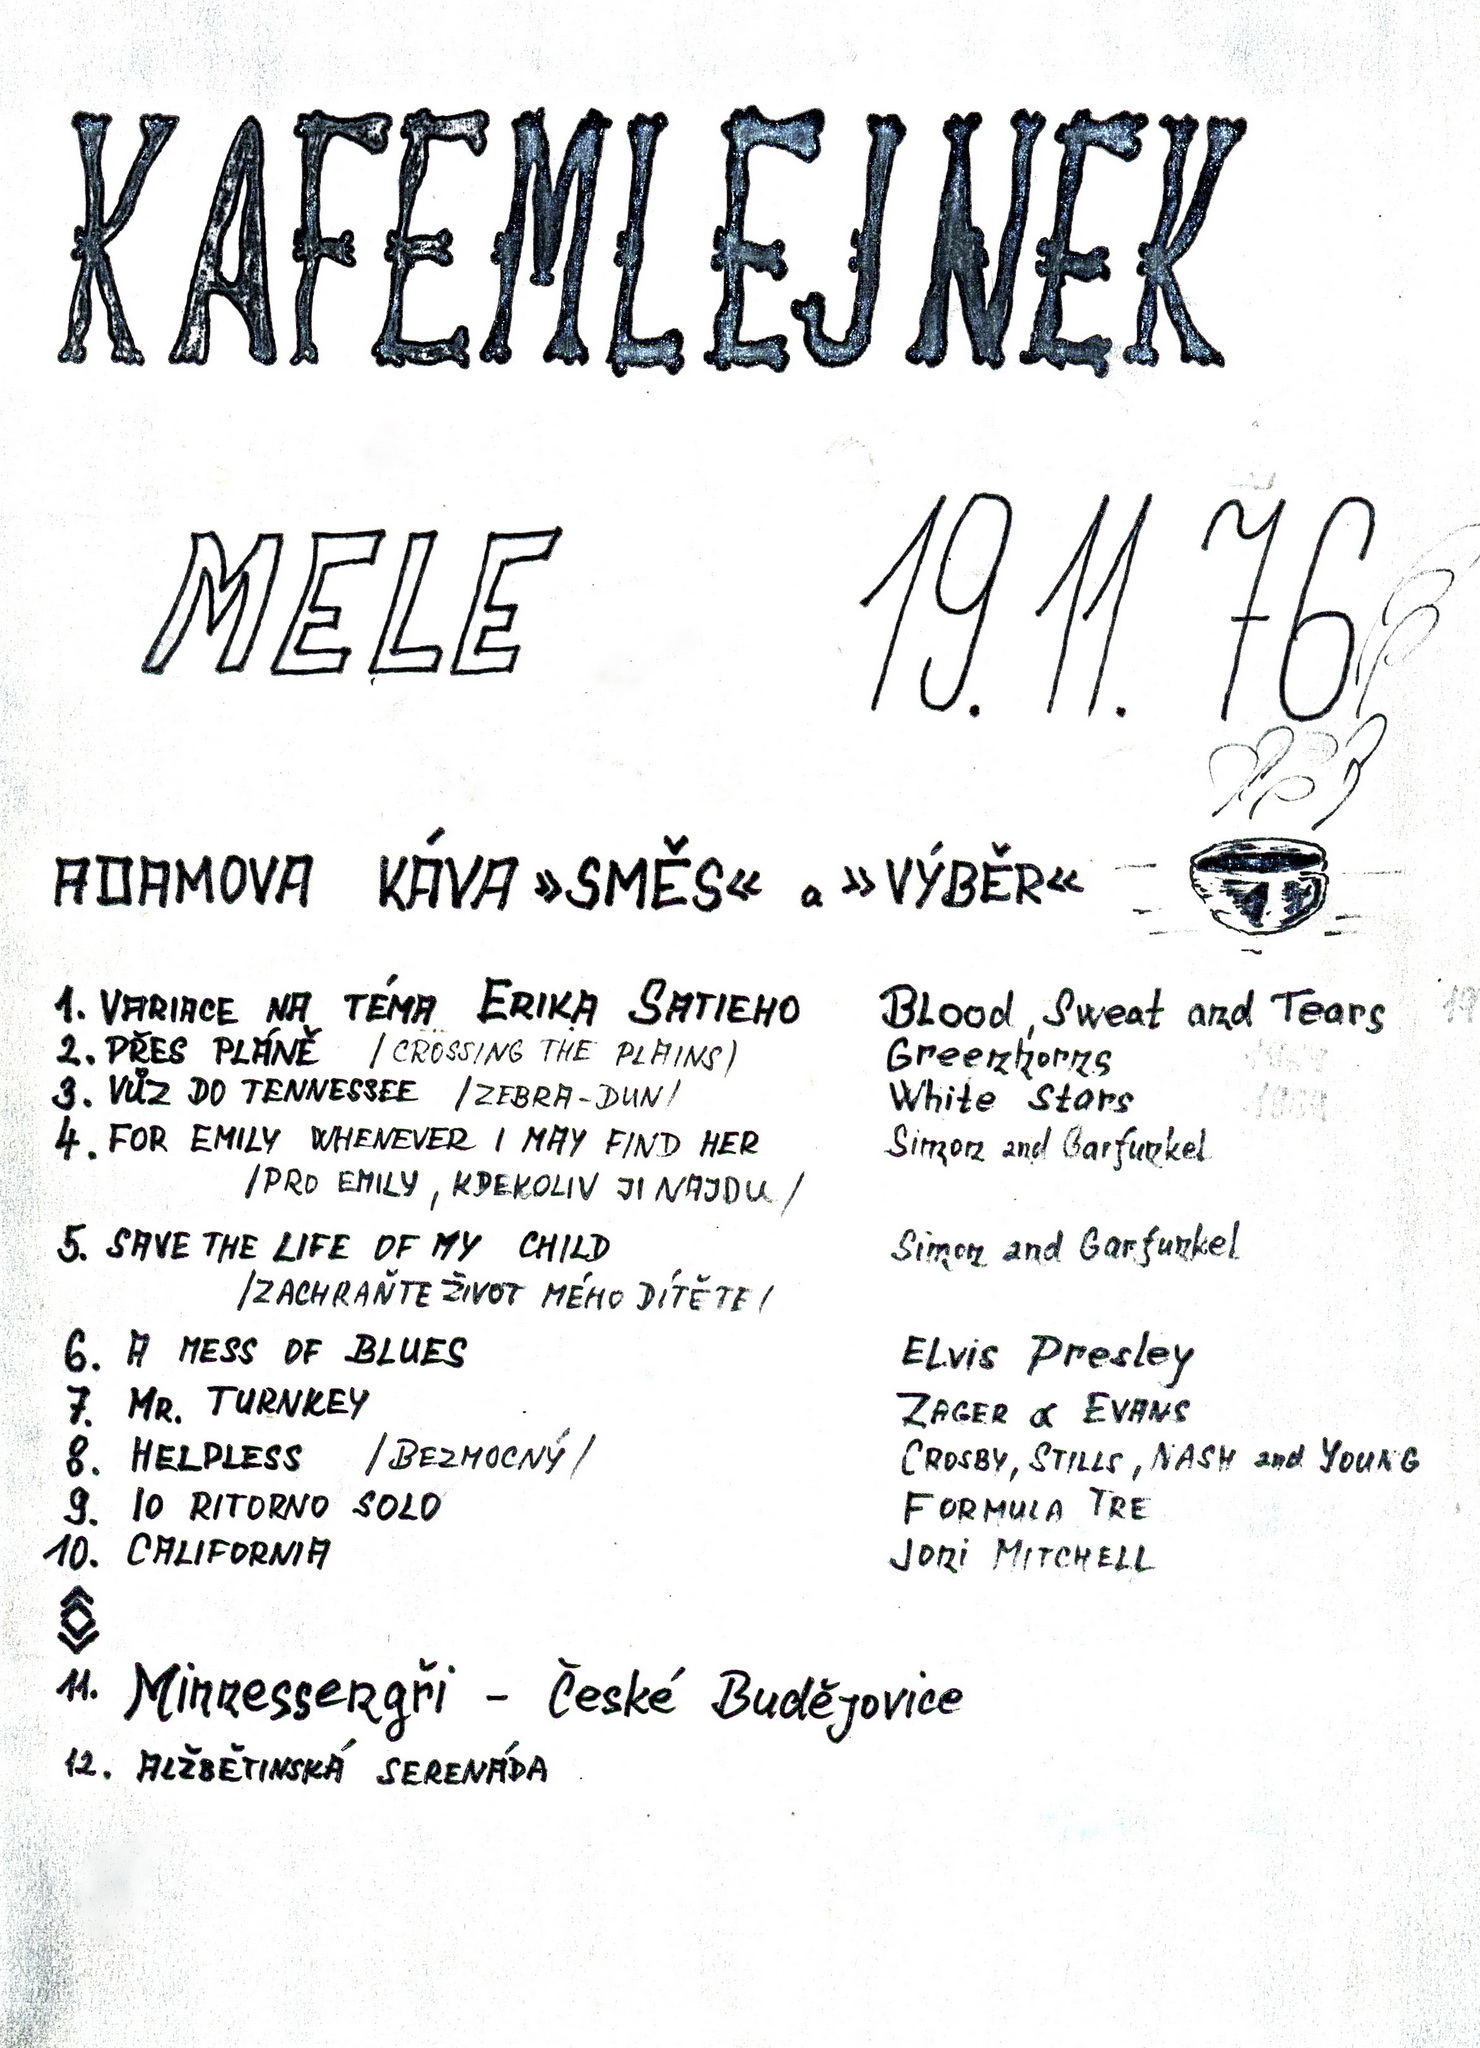 KAFEMLEJNEK
MELE 19. 11. 76
ADAMOVA KÁVA »SMĚS« a »VÝBĚR«
1. VARIACE NA TÉMA ERIKA SATIEHO Blood, Sweat and Tears
2. PŘES PLÁNĚ /CROSSING THE PLAINS) Greenhorns
3. VŮZ DO TENNESSEE /ZEBRA-DUN/ White Stars
4. FOR EMILY WHENEVER I MAY FIND HER Simon and Garfunkel
/PRO EMILY, KDEKOLIV JI NAJDU/
5. SAVE THE LIFE OF MY CHILD Simon and Garfunkel
/ZACHRAŇTE ŽIVOT MÉHO DÍTĚTE/
6. A MESS OF BLUES ELvis Presley
7. MR. TURNKEY ZAGER & EVANS
8. HELPLESS /BEZMOCNÝ/ CROSBY, STILLS, NASH and YOUNG
9. IO RITORNO SOLO FORMULA TRE
10. CALIFORNIA Joni MITCHELL
11. Minnessengři - České Budějovice
12. ALŽBĚTINSKÁ SERENÁDA